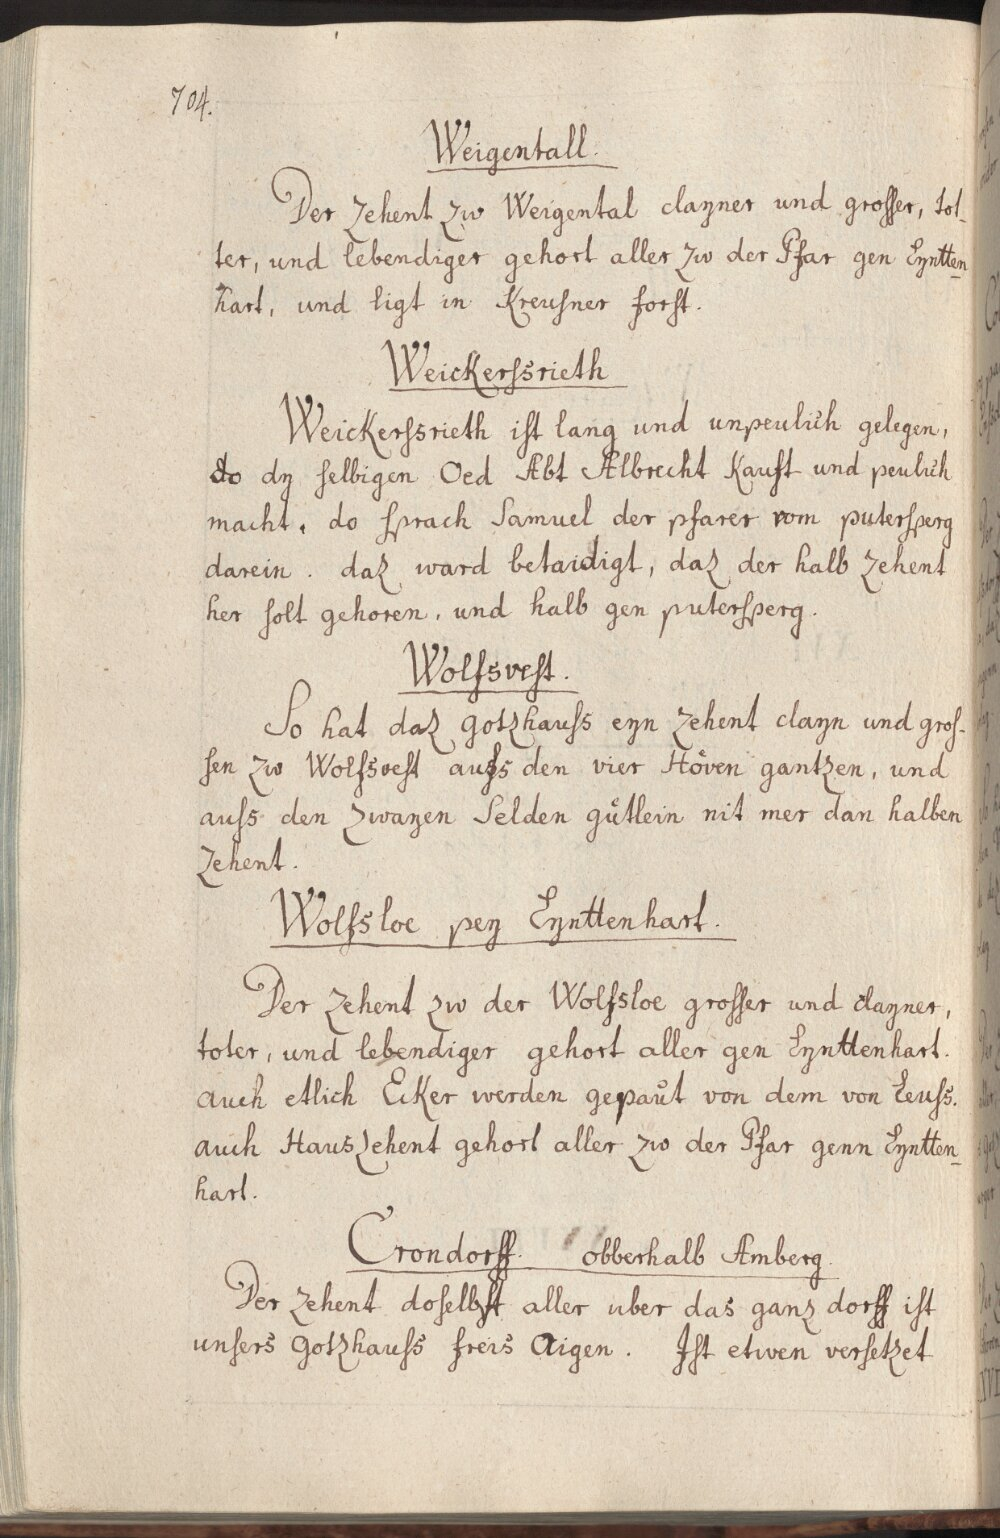 704.
Weigentall.
Der Zehent zw Weigental clayner und grosser, tot-
ter, und lebendiger gehort aller zw der Pfar gen Eyntten-
hart, und ligt in Kreusner forst.
Weickerssrieth
Weickerssrieth ist lang und unpeulich gelegen,
do dy selbigen Oed Abt Albrecht Kauft und peulich
macht, do sprach Samuel der pfarer vom putersperg
darein. daz ward betaidigt, daz der halb Zehent
her solt gehoren, und halb gen putersperg.
Wolfsvest.
So hat daz gotzhauss eyn Zehent clayn und gros-
sen zw Wolfsvest auss den vier Höven gantzen, und
auss den zwayen Selden gůtlein nit mer dan halben
Zehent.
Wolfsloe pey Eynttenhart.
Der Zehent zw der Wolfsloe grosser und clayner,
toter, und lebendiger gehort aller gen Eynttenhart.
auch etlich Ecker werden gepaut von dem von Leuss.
auch Hauszehent gehort aller zw der Pfar genn Eyntten-
hart.
Crondorff. obberhalb Amberg.
Der Zehent doselbst aller uber das ganz dorff ist
unsers Gotzhauss freis Aigen. Ist etwen versetzet